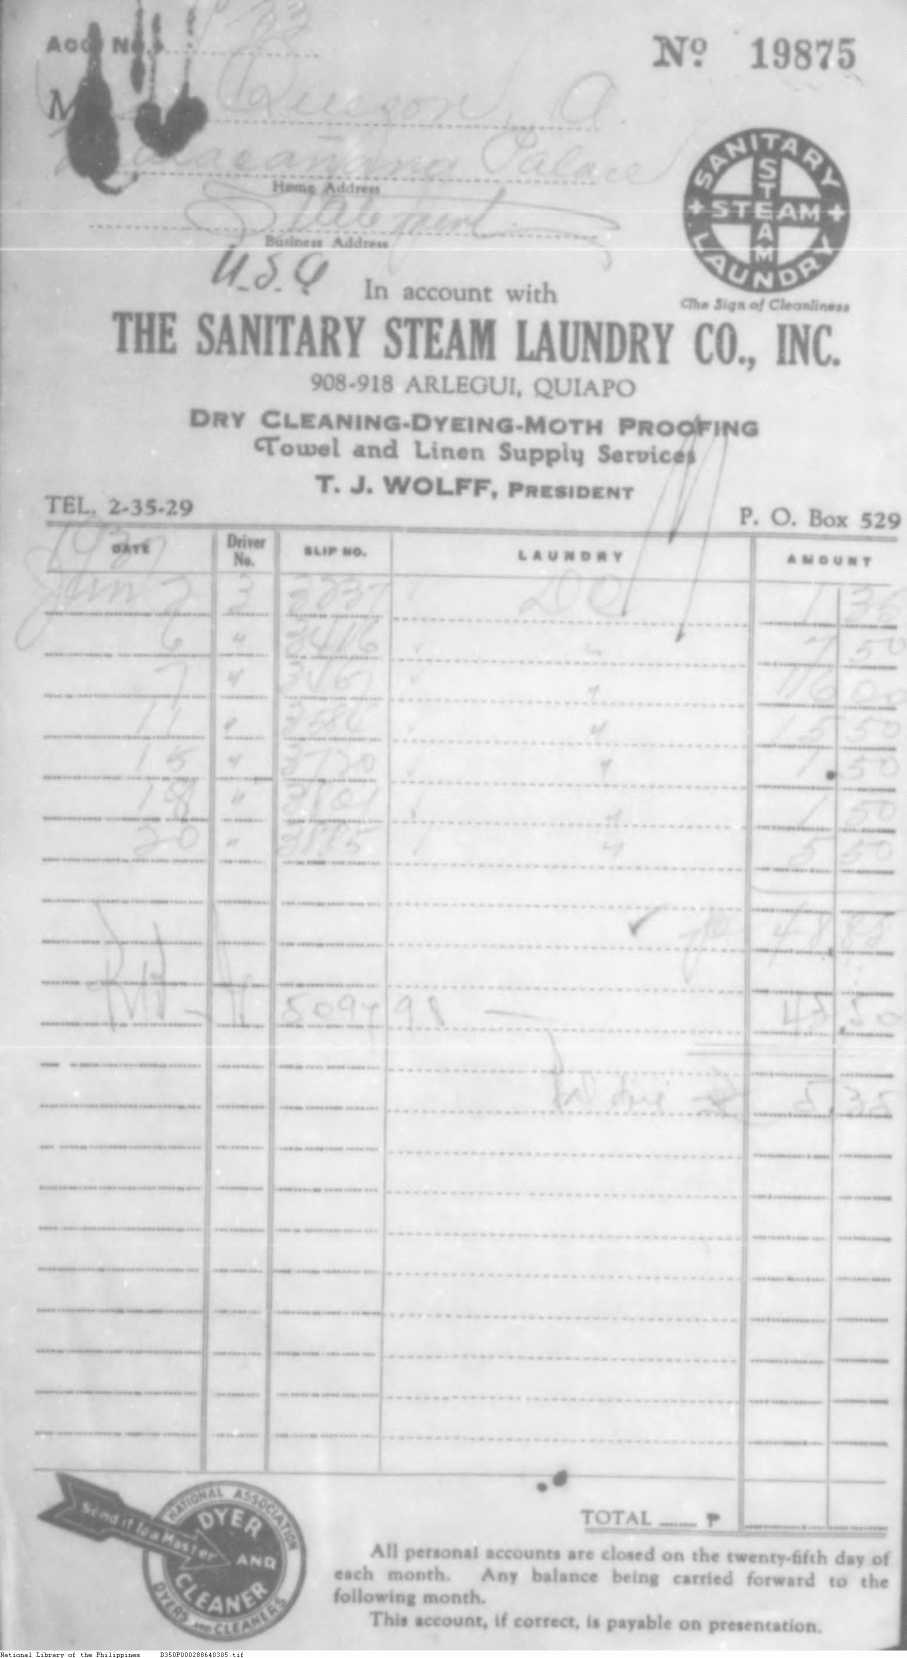 Acc. No.
Nº 19875
M Quezon, A.
Malacañang Palace
Home Address
Business Address
SANITARY STEAM LAUNDRY
STEAM
The Sign of Cleanliness
In account with
THE SANITARY STEAM LAUNDRY CO., INC.
908-918 ARLEGUI, QUIAPO
DRY CLEANING-DYEING-MOTH PROOFING
Towel and Linen Supply Services
T. J. WOLFF, PRESIDENT
TEL. 2-35-29
P. O. Box 529
DATE Driver No. SLIP NO. LAUNDRY AMOUNT
Jun 2 3 DC 1 35
6 " 3416 " 7 50
7 " " 00
11 " " 15 50
15 " 3720 " 1 50
18 " " 1 50
20 " 3885 " 5 50
48 85
Bal due 5.35
TOTAL ₱
Send it to a Master
NATIONAL ASSOCIATION
DYER AND CLEANER
DYERS AND CLEANERS
All personal accounts are closed on the twenty-fifth day of
each month. Any balance being carried forward to the
following month.
This account, if correct, is payable on presentation.
National Library of the Philippines B350P000288640305.tif